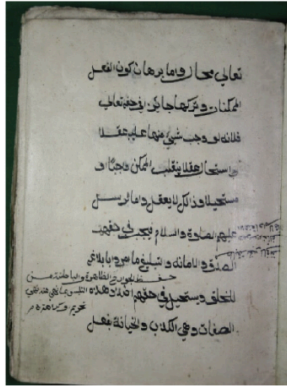 تعالى محال وامابرهان كون الفعل
الممكنات وتركها جائز في حقه تعالى
فلانه لو وجب شيئ منها عليه عقلا
او استحال عقلا لنقلب الممكن واجبا و
مستحيلا وذالك لا يعقل واما الرسل
عليهم الصلاة والسلام فيجب في حقهم
الصدق والامانة وتبليغ ما مروا بابلاغه
حفظ الجوارح الظاهرة والباطنة من
للخلق ويستحيل في حقهم اضداد هذه
الصفات وهي الكذب والخيانة بفعل